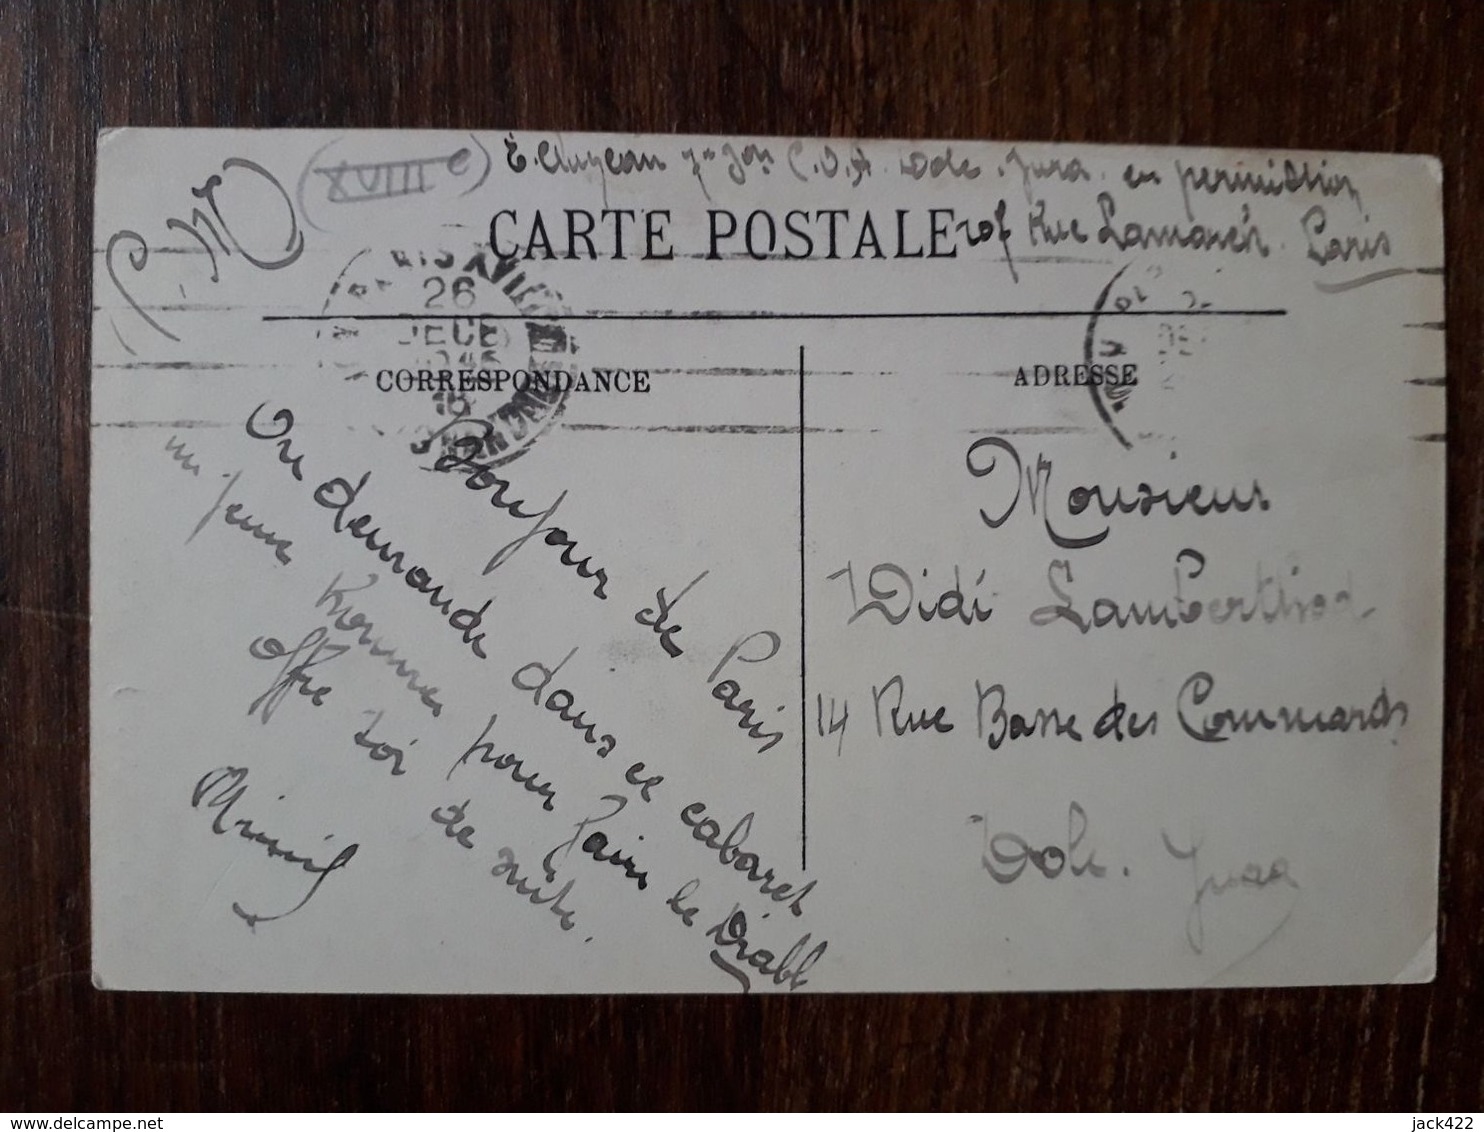 F.M.
(XVIII e)
E. Clugean 7e Son C.O.A. Dole. Jura. en permission
CARTE POSTALE
Rue Lamarck. Paris
PARIS XVIII
26
DECE
CORRESPONDANCE
ADRESSE
Bonjour de Paris
On demande dans ce cabaret
un jeune homme pour faire le Diable
offre toi de suite.
Mimil
Monsieur
Didi Lambert
14 Rue Basse des Commards
Dole. Jura
delcampe.net
jack422